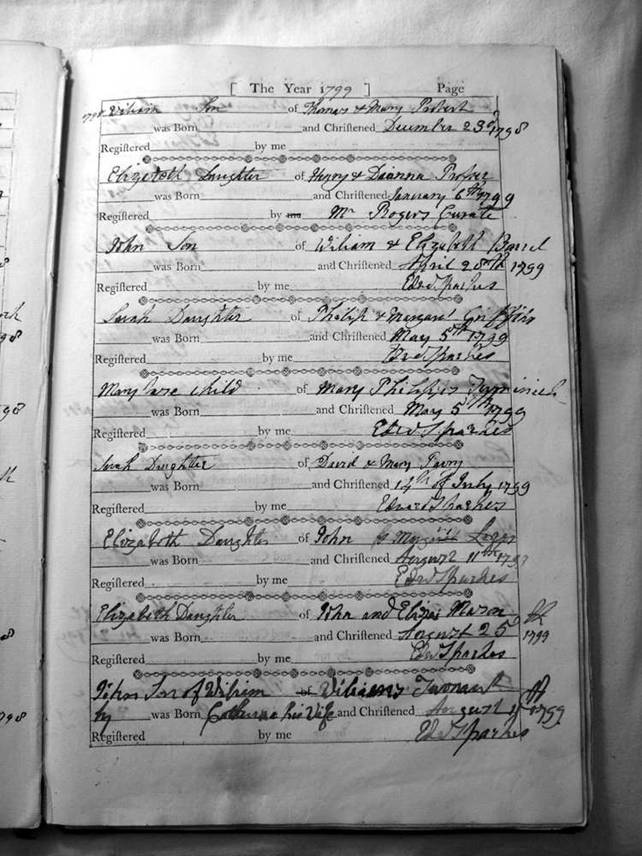 [ The Year 1799 ] Page
William Son of Thomas & Mary Probert
was Born and Christened December 23d 1798
Registered by me
Elizebeth Daughter of Henry & Dianna
was Born and Christened January 6th 1799
Registered by me Mr Rogers Curate
John Son of William & Elizabeth
was Born and Christened April 28th 1799
Registered by me Edwd Sparkes
Sarah Daughter of Phillip & Margaret Griffis
was Born and Christened May 5th 1799
Registered by me Edwd Sparkes
Mary child of Mary Phillips
was Born and Christened May 5th 1799
Registered by me Edwd Sparkes
Sarah Daughter of David & Mary
was Born and Christened 14th of July 1799
Registered by me Edward Sparkes
Elizabeth Daughter of John & Margaret
was Born and Christened August 11th 1799
Registered by me Edwd Sparkes
Elizabeth Daughter of John and Mason
was Born and Christened August 25 th 1799
Registered by me Edwd Sparkes
John Son of William of
by was Born Catherine his Wife and Christened August 1799
Registered by me Edwd Sparkes